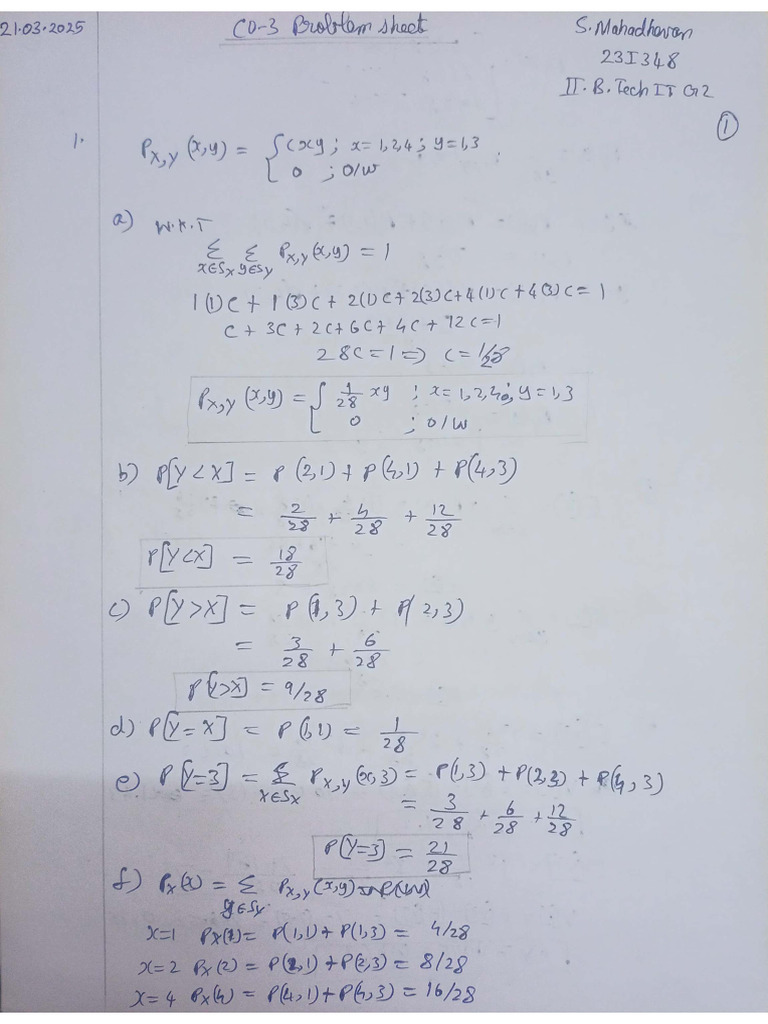 21.03.2025 CO-3 Problem sheet S. Mahadhevan
23I348
II. B. Tech IT G2
①
1. P_{X,Y}(x,y) = { cxy ; x=1,2,4 ; y=1,3
0 ; O/W
a) W.K.T
Σ_{x∈S_X} Σ_{y∈S_Y} P_{X,Y}(x,y) = 1
1(1)c + 1(3)c + 2(1)c + 2(3)c + 4(1)c + 4(3)c = 1
c + 3c + 2c + 6c + 4c + 12c = 1
28c = 1 => c = 1/28
P_{X,Y}(x,y) = { 1/28 xy ; x=1,2,4 ; y=1,3
0 ; O/W
b) P[Y<X] = P(2,1) + P(4,1) + P(4,3)
= 2/28 + 4/28 + 12/28
P[Y<X] = 18/28
c) P[Y>X] = P(1,3) + P(2,3)
= 3/28 + 6/28
P[Y>X] = 9/28
d) P[Y=X] = P(1,1) = 1/28
e) P[Y=3] = Σ_{x∈S_X} P_{X,Y}(x,3) = P(1,3) + P(2,3) + P(4,3)
= 3/28 + 6/28 + 12/28
P[Y=3] = 21/28
f) P_X(x) = Σ_{y∈S_Y} P_{X,Y}(x,y)
x=1 P_X(1) = P(1,1) + P(1,3) = 4/28
x=2 P_X(2) = P(2,1) + P(2,3) = 8/28
x=4 P_X(4) = P(4,1) + P(4,3) = 16/28